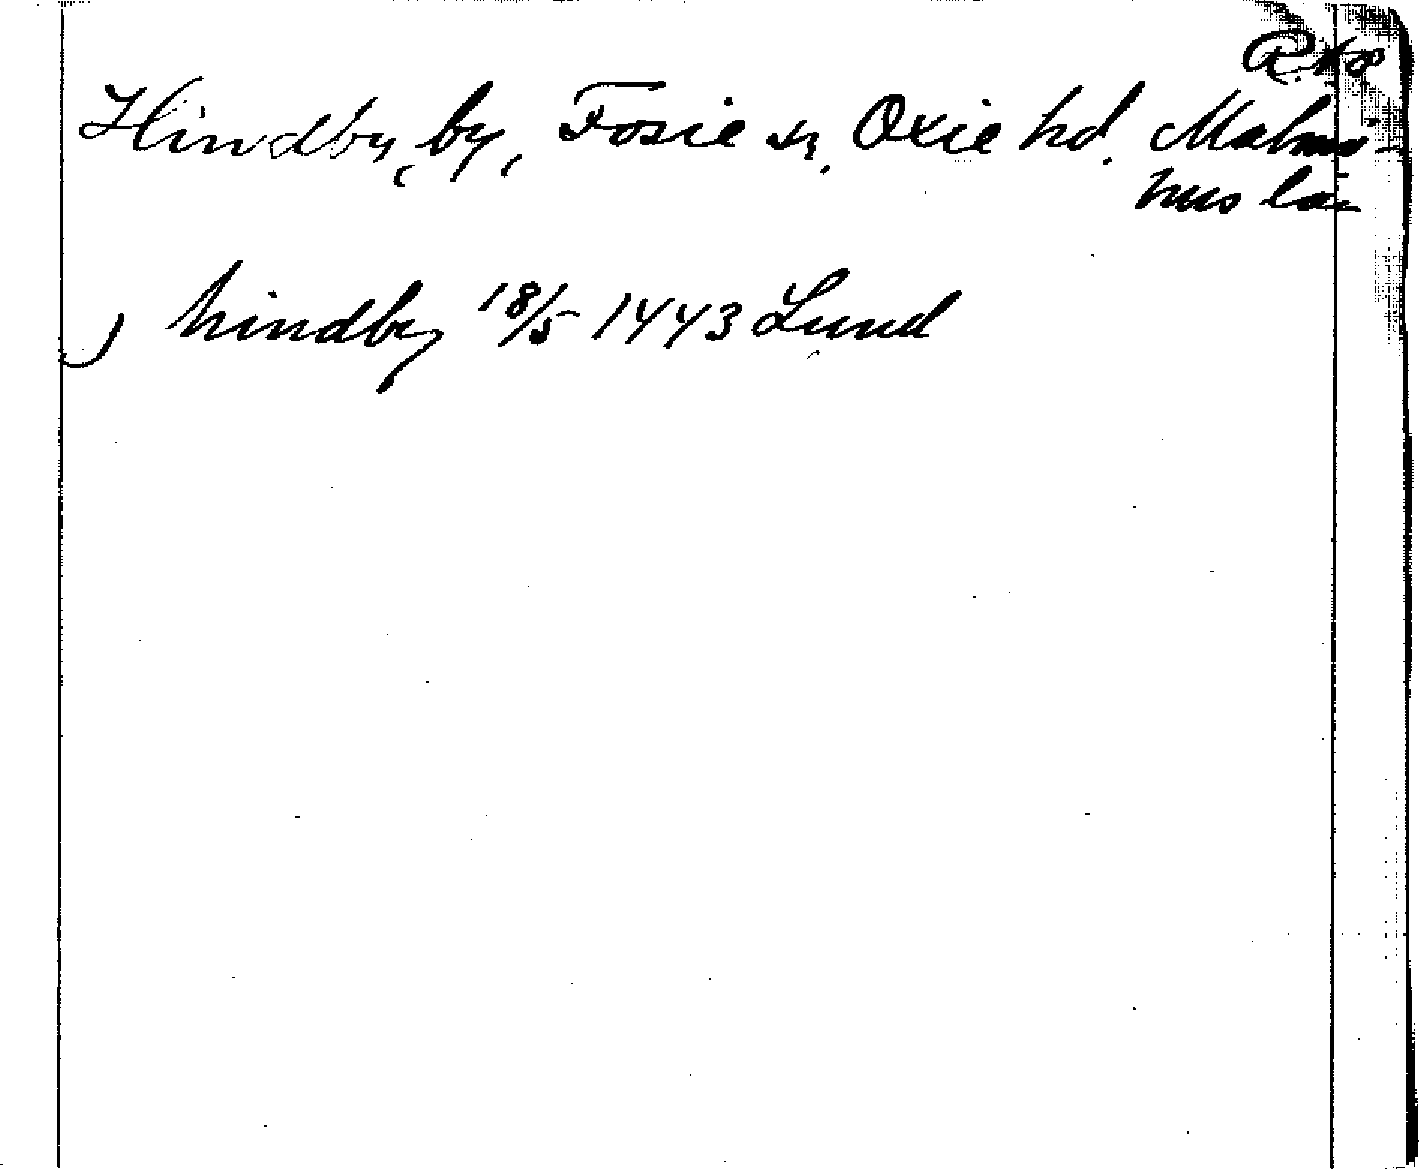 Hindby, by, Fosie sn, Oxie hd. Malmö-
hus län
) hindby 18/5 1443 Lund